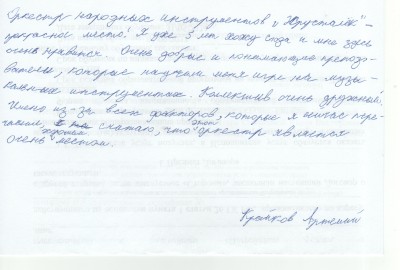 Оркестр народных инструментов „Хрусталёк" –
прекрасное место! Я уже 3 лет хожу сюда и мне здесь
очень нравится. Очень добрые и понимающие препода-
ватели, которые научили меня игре на музы-
кальных инструментах. Колектив очень дружный.
Именно из-за всех факторов, которые я сейчас пере-
числил, я считаю, что этот оркестр является
очень хорошим местом.
Крайков Артемий